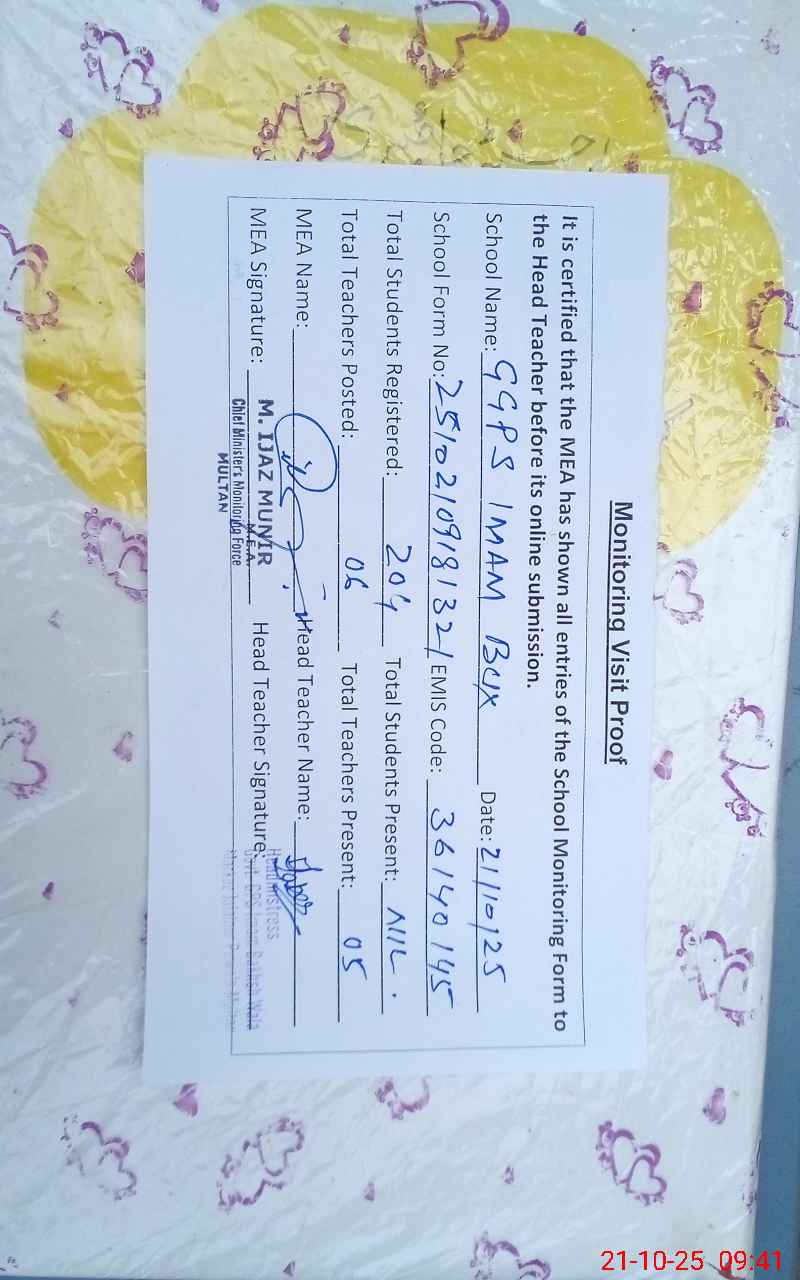 Monitoring Visit Proof
It is certified that the MEA has shown all entries of the School Monitoring Form to
the Head Teacher before its online submission.
School Name: GGPS IMAM BUX Date: 21/10/25
School Form No: 25102109181321 EMIS Code: 36140145
Total Students Registered: 204 Total Students Present: NIL.
Total Teachers Posted: 06 Total Teachers Present: 05
MEA Name: Head Teacher Name:
MEA Signature: Head Teacher Signature:
M. IJAZ MUNIR
M.E.A.
Chief Minister's Monitoring Force
MULTAN
Headmistress
Govt. GPS Imam Bakhsh Wala
21-10-25 09:41